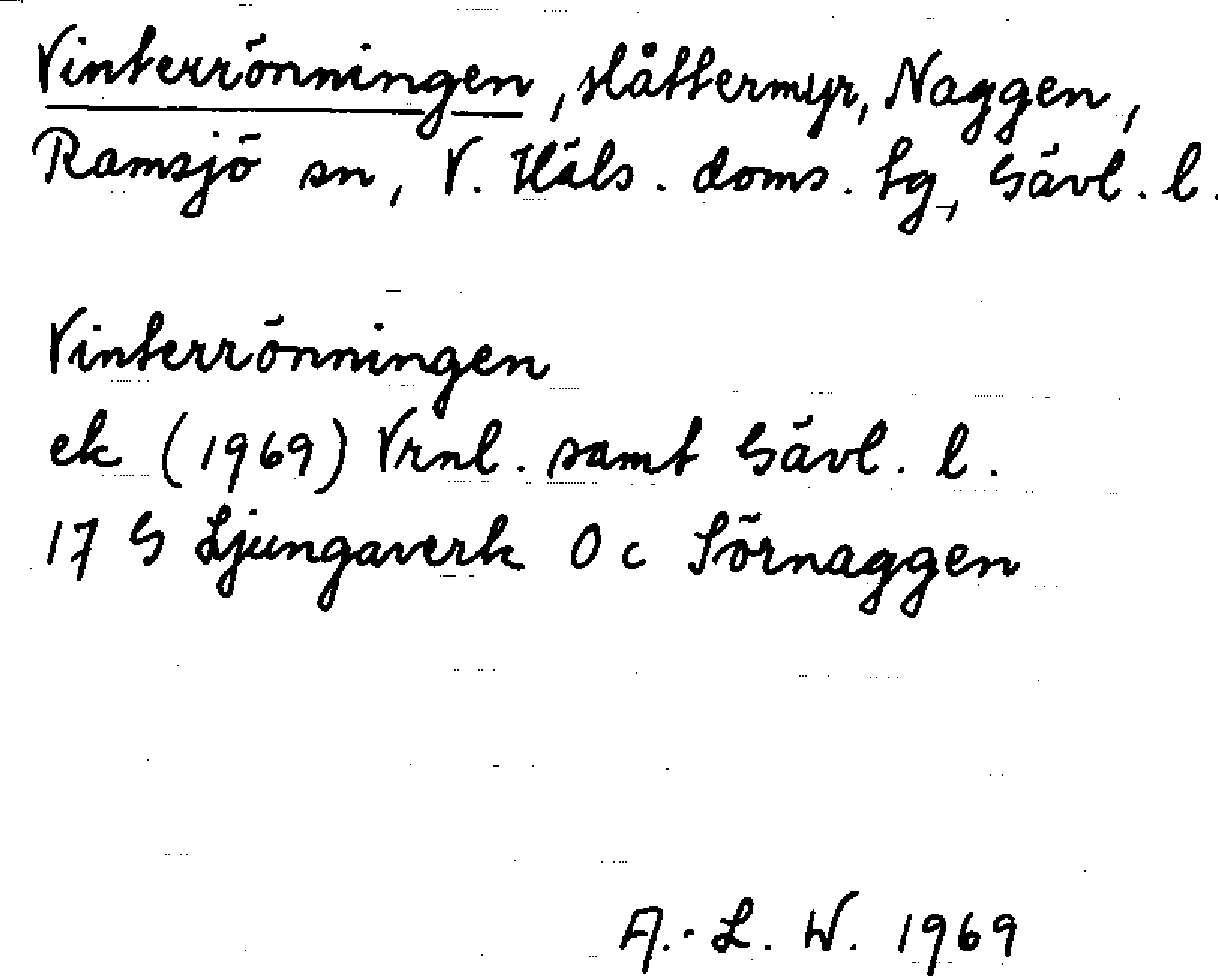 Vinterröningen, slåttermyr, Naggen,
Ramsjö sn, V. Häls. doms. tg, Gävl. l.
Vinterrönningen
ek (1969) Vrnl. samt Gävl. l.
17 G Ljungaverk 0 c Sörnaggen
A.-L. W. 1969